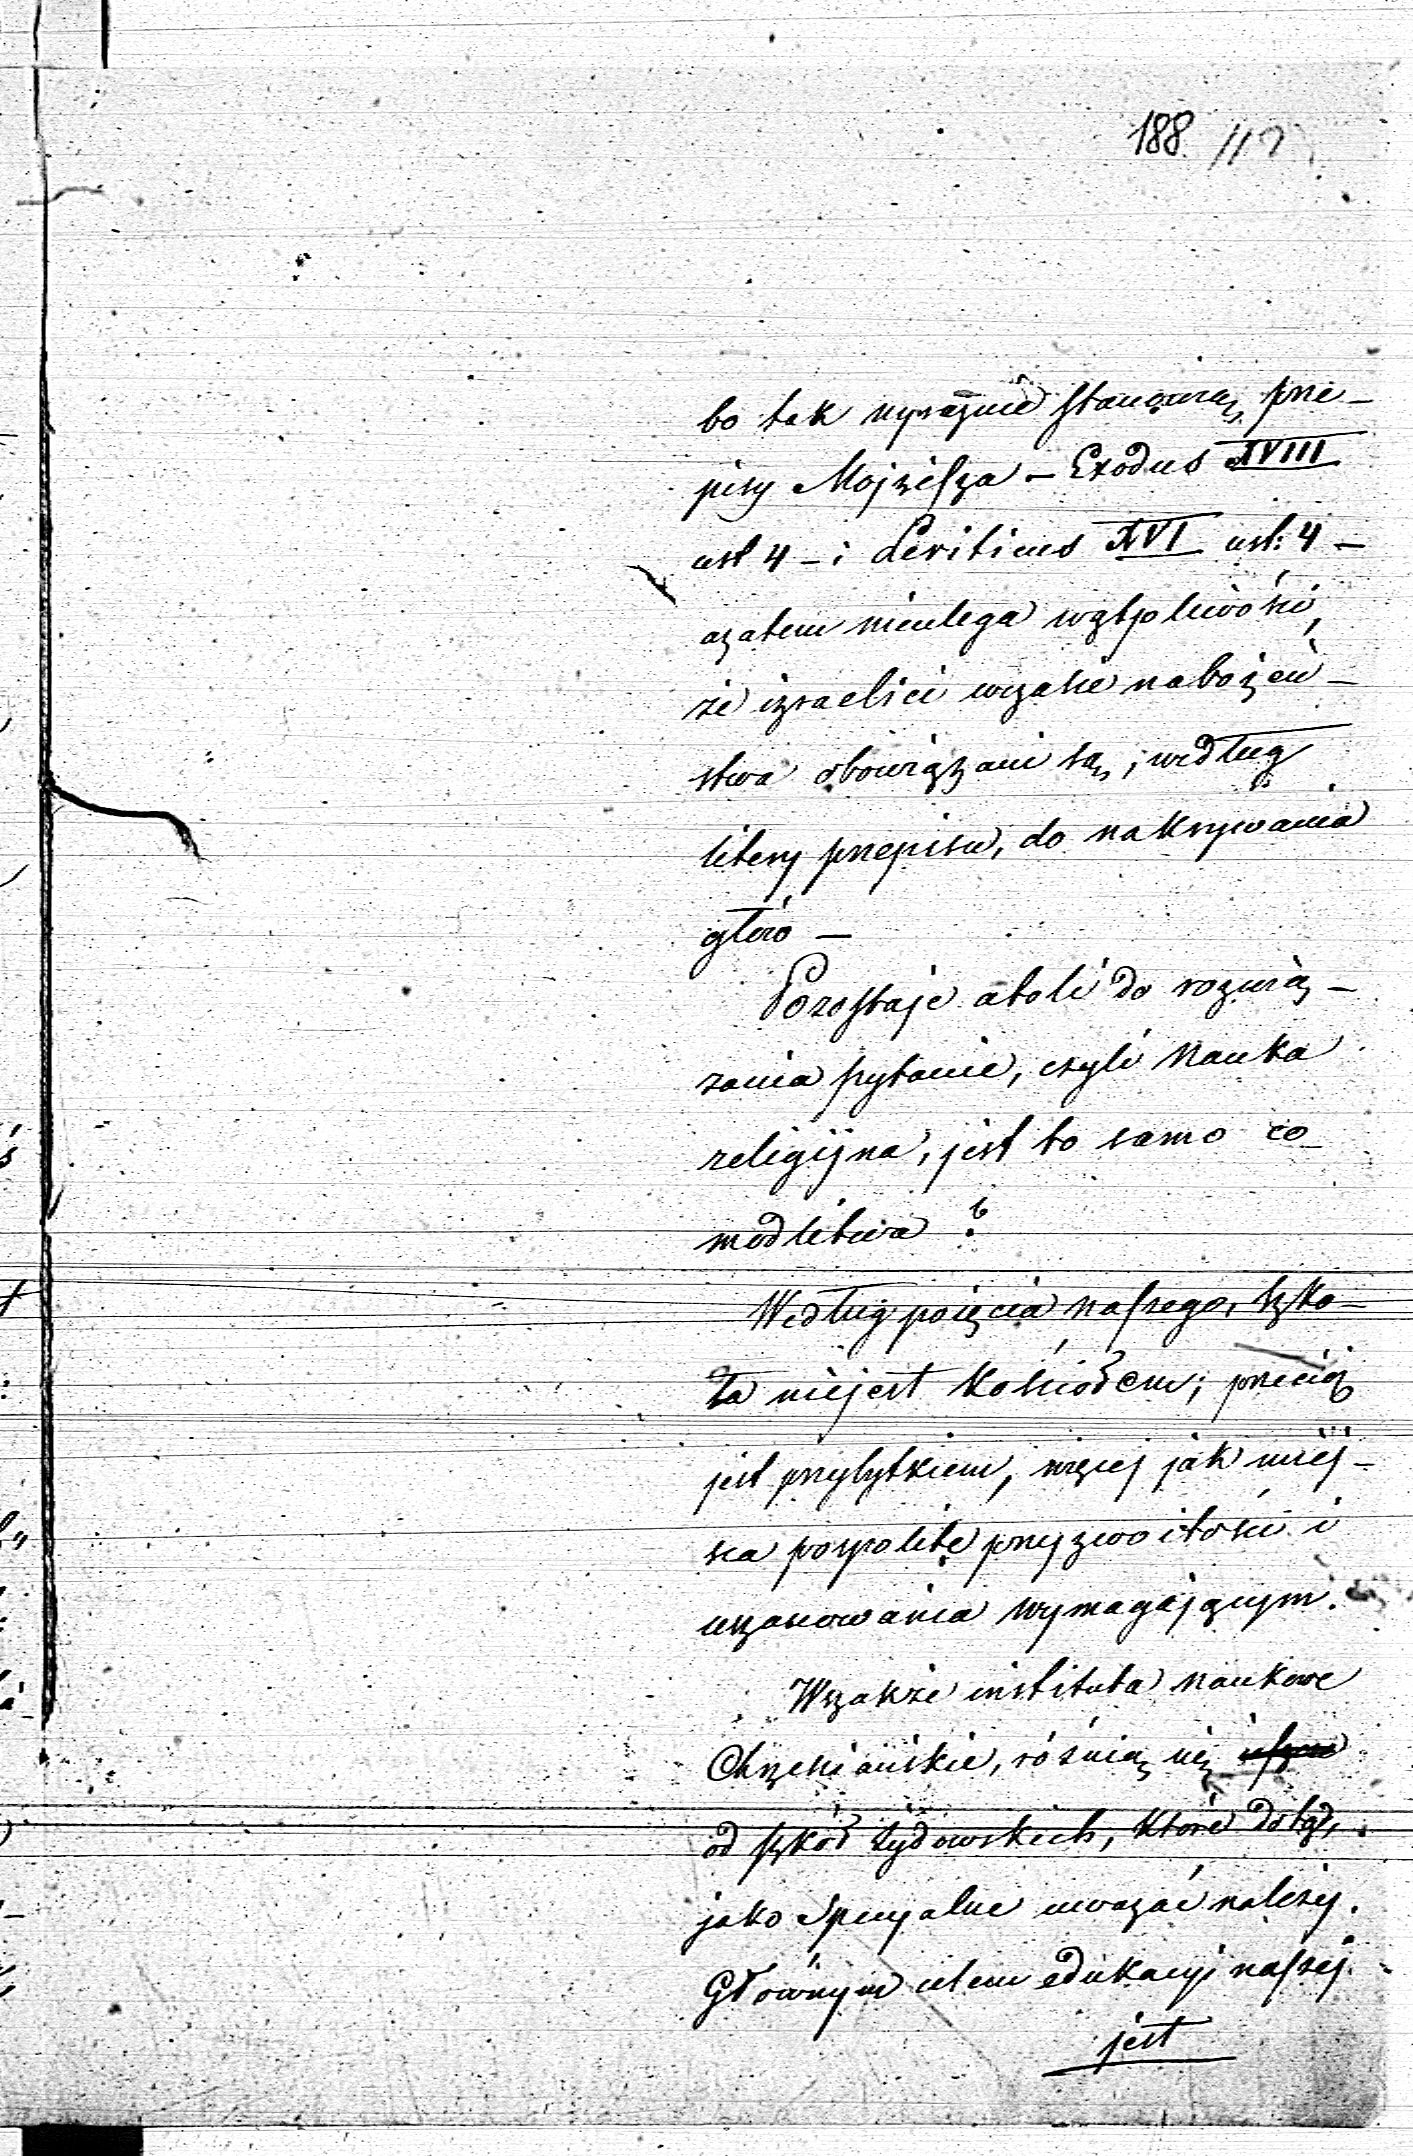 188. 112
bo tak wyraźnie stanowią prze-
pisy Mojżesza - Exodus XVIII
ust 4 - i Leviticus XVI ust: 4 -
azatem nieulega wątpliwości,
że izraelici wczasie nabożeń-
stwa obowiązani są, według
litery przepisu, do nakrywania
głów -
Pozostaje atoli do rozwią-
zania pytanie, czyli Nauka
religijna, jest to samo co
modlitwa ?
Według pojęcia naszego, szko-
ła niejest kościołem; przecież
jest przybytkiem, więcej jak miej-
sca pospolite przyzwoitości i
uszanowania wymagającym.
Wszakże instituta naukowe
Chrześciańskie, różnią się
od szkół żydowskich, które dotąd,
jako specyalne uważać należy.
Głównym celem edukacyi naszej
jest